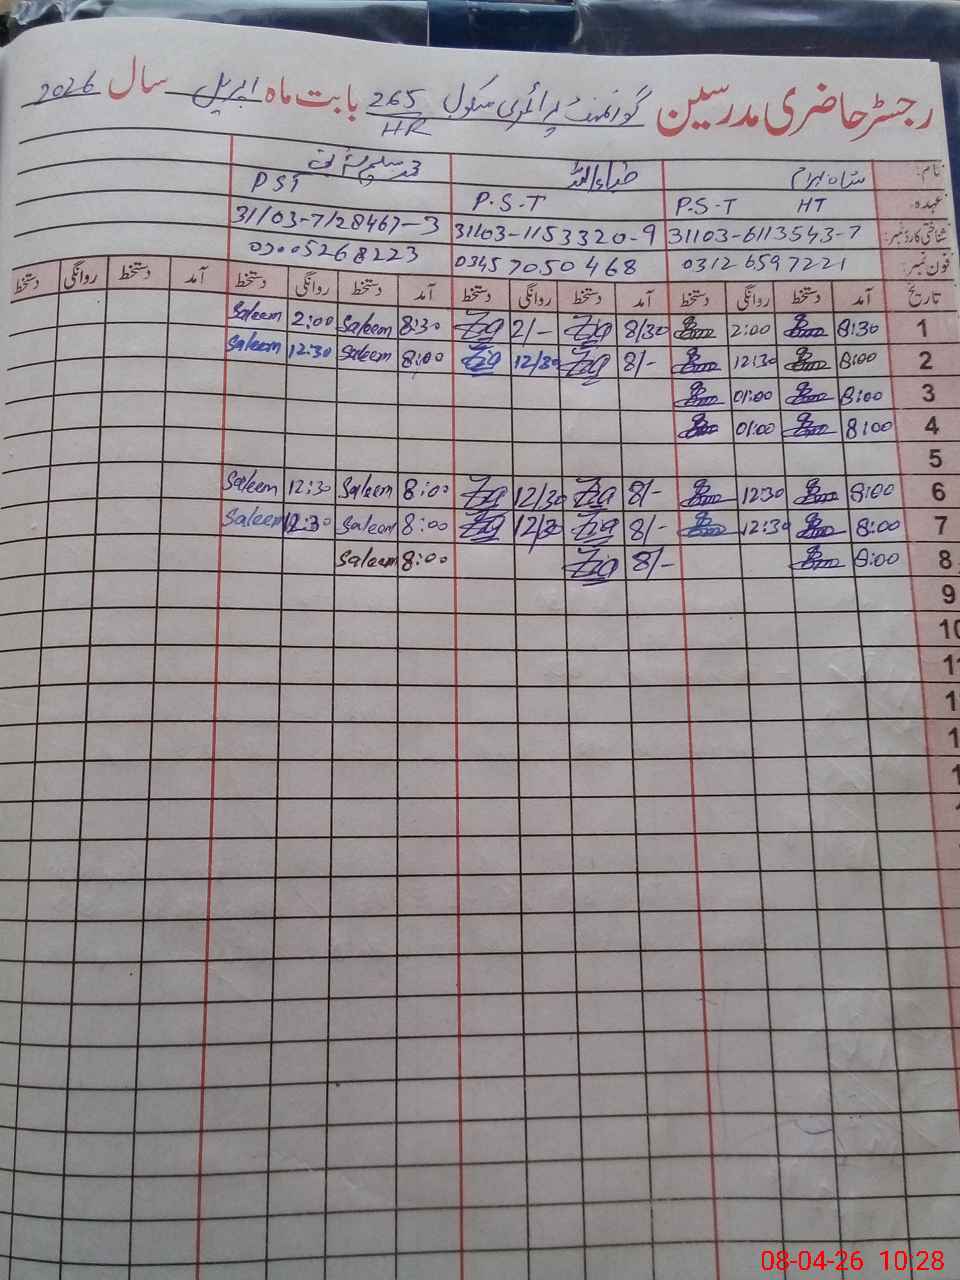 رجسٹر حاضری مدرسین گورنمنٹ پرائمری سکول 265/HR بابت ماہ اپریل سال 2026
نام: ضیاء اللہ محمد سلیم
عہدہ: P.S.T HT P.S.T PST
شناختی کارڈ نمبر: 31103-6113543-7 31103-1153320-9 31103-7128467-3
فون نمبر: 0312 6597221 0345 7050468 03005268223
تاریخ آمد دستخط روانگی دستخط آمد دستخط روانگی دستخط آمد دستخط روانگی دستخط آمد دستخط روانگی دستخط
1 8:30 2:00 8/30 Zia 2/- Zia 8:30 Saleem 2:00 Saleem
2 8:00 12:30 8/- Zia 12/30 Zia 8:00 Saleem 12:30 Saleem
3 8:00 01:00
4 8:00 01:00
5
6 8:00 12:30 8/- Zia 12/30 Zia 8:00 Saleem 12:30 Saleem
7 8:00 12:30 8/- Zia 12/30 Zia 8:00 Saleem 12:30 Saleem
8 8:00 8/- Zia 8:00 Saleem
9
10
08-04-26 10:28